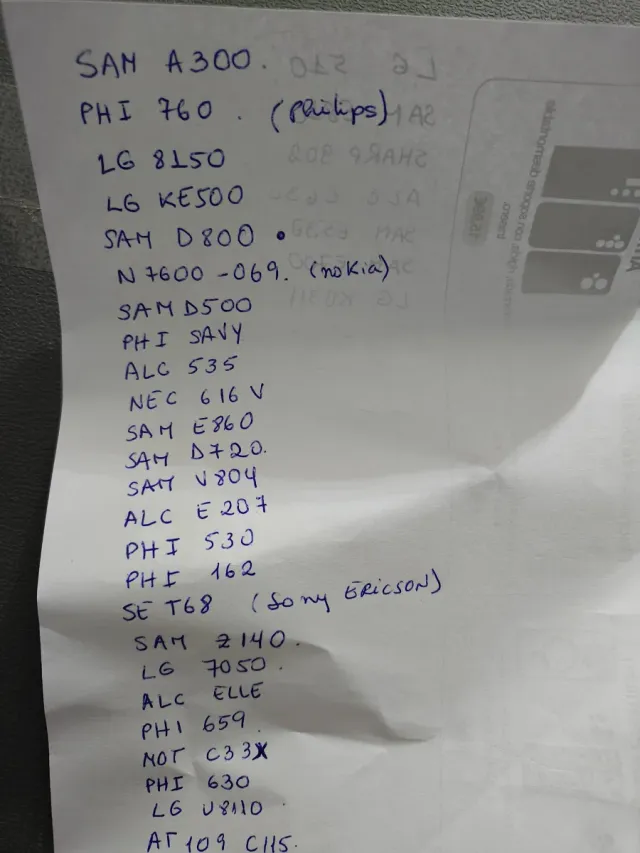 SAM A300.
PHI 760. (Philips)
LG 8150
LG KE500
SAM D800 •
N7600-069. (nokia)
SAM D500
PHI SAVY
ALC 535
NEC 616 V
SAM E860
SAM D720.
SAM V804
ALC E207
PHI 530
PHI 162
SE T68 (Sony ERICSON)
SAM Z140.
LG 7050.
ALC ELLE
PHI 659.
MOT C33X
PHI 630
LG U8110
AT 109 C115.
LG 510
SHARP 802